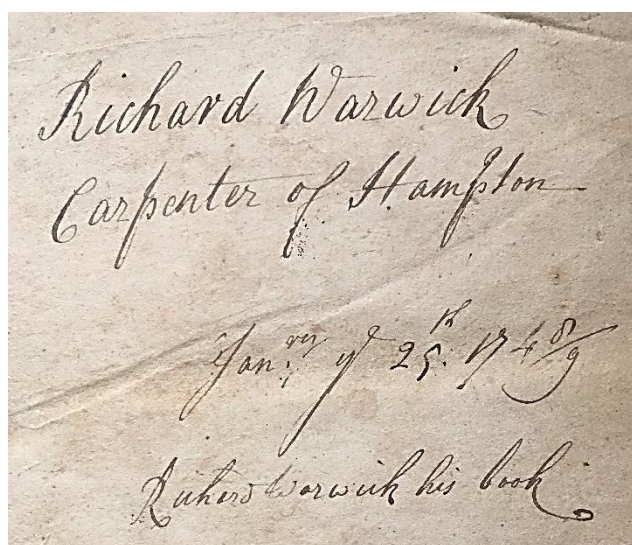 Richard Warwick
Carpenter of Hampton
Jan.ry ye 25.th 174 8/9
Richard Warwick his book